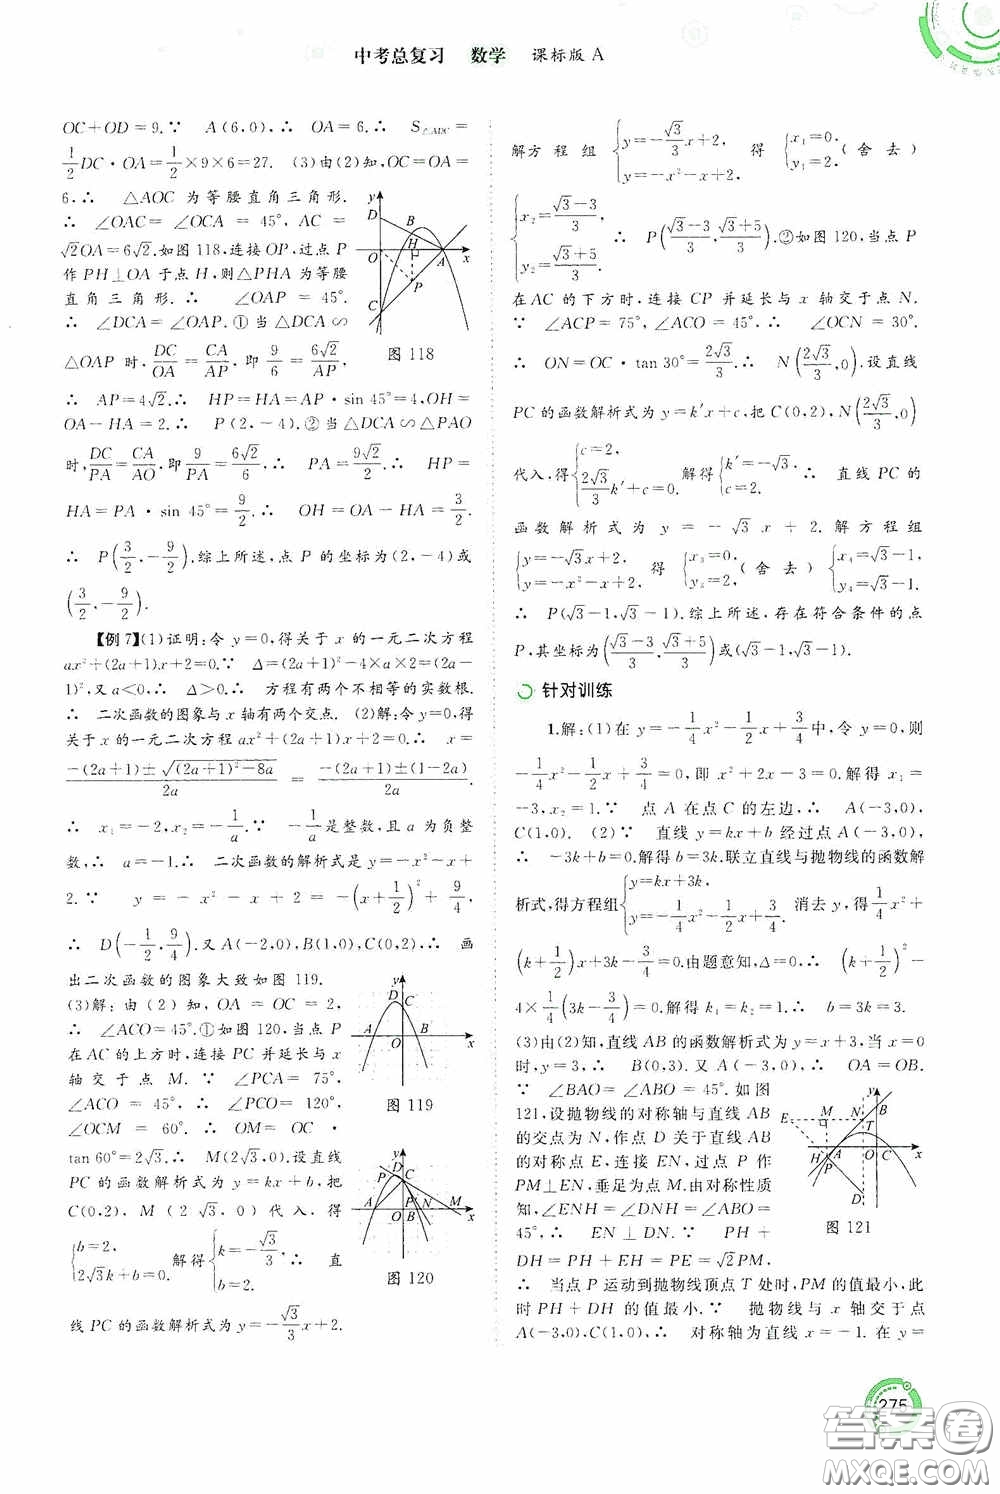 中考总复习 数学 课标版 A
OC+OD=9.∵ A(6,0),∴ OA=6.∴ S△ADC=
1/2 DC·OA=1/2×9×6=27. (3)由(2)知,OC=OA=
6,∴ △AOC 为等腰直角三角形.
∴ ∠OAC=∠OCA=45°,AC=
√2OA=6√2.如图118,连接OP,过点P
作PH⊥OA于点H,则△PHA为等腰
直角三角形.∴ ∠OAP=45°.
∴ ∠DCA=∠OAP.①当△DCA∽
△OAP时,DC/OA=CA/AP,即9/6=6√2/AP.
图 118
∴ AP=4√2.∴ HP=HA=AP·sin 45°=4,OH=
OA-HA=2.∴ P(2,-4).②当△DCA∽△PAO
时,DC/PA=CA/AO,即9/PA=6√2/6.∴ PA=9√2/2.∴ HP=
HA=PA·sin 45°=9/2.∴ OH=OA-HA=3/2.
∴ P(3/2,-9/2).综上所述,点P的坐标为(2,-4)或
(3/2,-9/2).
【例7】(1)证明:令y=0,得关于x的一元二次方程
ax²+(2a+1)x+2=0.∵ Δ=(2a+1)²-4×a×2=(2a-
1)²,又a<0,∴ Δ>0.∴ 方程有两个不相等的实数根.
∴ 二次函数的图象与x轴有两个交点. (2)解:令y=0,得
关于x的一元二次方程ax²+(2a+1)x+2=0.∴ x=
-(2a+1)±√((2a+1)²-8a)/2a = -(2a+1)±(1-2a)/2a.
∴ x₁=-2,x₂=-1/a.∵ -1/a是整数,且a为负整
数,∴ a=-1.∴ 二次函数的解析式是y=-x²-x+
2.∵ y=-x²-x+2=-(x+1/2)²+9/4,
∴ D(-1/2,9/4).又A(-2,0),B(1,0),C(0,2),∴ 画
出二次函数的图象大致如图119.
(3)解:由(2)知,OA=OC=2,
∴ ∠ACO=45°.①如图120,当点P
在AC的上方时,连接PC并延长与x
轴交于点M.∵ ∠PCA=75°,
∠ACO=45°,∴ ∠PCO=120°,
图 119
∠OCM=60°.∴ OM=OC·
tan 60°=2√3.∴ M(2√3,0).设直线
PC的函数解析式为y=kx+b,把
C(0,2),M(2√3,0)代入,得
{b=2, 2√3k+b=0. 解得{k=-√3/3, b=2. ∴ 直
图 120
线PC的函数解析式为y=-√3/3x+2.
解方程组{y=-√3/3x+2, y=-x²-x+2, 得{x₁=0, y₁=2. (舍去)
{x₂=(√3-3)/3, y₂=(√3+5)/3. ∴ P((√3-3)/3,(√3+5)/3).②如图120,当点P
在AC的下方时,连接CP并延长与x轴交于点N.
∵ ∠ACP=75°,∠ACO=45°,∴ ∠OCN=30°.
∴ ON=OC·tan 30°=2√3/3.∴ N(2√3/3,0).设直线
PC的函数解析式为y=k′x+c,把C(0,2),N(2√3/3,0)
代入,得{c=2, 2√3/3k′+c=0. 解得{k′=-√3, c=2. ∴ 直线PC的
函数解析式为y=-√3x+2.解方程组
{y=-√3x+2, y=-x²-x+2, 得{x₃=0, y₃=2, (舍去){x₄=√3-1, y₄=√3-1.
∴ P(√3-1,√3-1).综上所述,存在符合条件的点
P,其坐标为((√3-3)/3,(√3+5)/3)或(√3-1,√3-1).
针对训练
1.解:(1)在y=-1/4x²-1/2x+3/4中,令y=0,则
-1/4x²-1/2x+3/4=0,即x²+2x-3=0.解得x₁=
-3,x₂=1.∵ 点A在点C的左边,∴ A(-3,0),
C(1,0). (2)∵ 直线y=kx+b经过点A(-3,0),
∴ -3k+b=0.解得b=3k.联立直线与抛物线的函数解
析式,得方程组{y=kx+3k, y=-1/4x²-1/2x+3/4. 消去y,得1/4x²+
(k+1/2)x+3k-3/4=0.由题意知,Δ=0,∴ (k+1/2)²-
4×1/4(3k-3/4)=0.解得k₁=k₂=1.∴ b=3k=3.
(3)由(2)知,直线AB的函数解析式为y=x+3,当x=0
时,y=3,∴ B(0,3).又A(-3,0),∴ OA=OB.
∴ ∠BAO=∠ABO=45°.如图
121,设抛物线的对称轴与直线AB
的交点为N,作点D关于直线AB
的对称点E,连接EN,过点P作
PM⊥EN,垂足为点M,由对称性质
知,∠ENH=∠DNH=∠ABO=
图 121
45°,∴ EN⊥DN.∵ PH+
DH=PH+EH=PE=√2PM.
∴ 当点P运动到抛物线顶点T处时,PM的值最小,此
时PH+DH的值最小.∵ 抛物线与x轴交于点
A(-3,0),C(1,0),∴ 对称轴为直线x=-1.在y=
275
答案圈
MXQE.COM